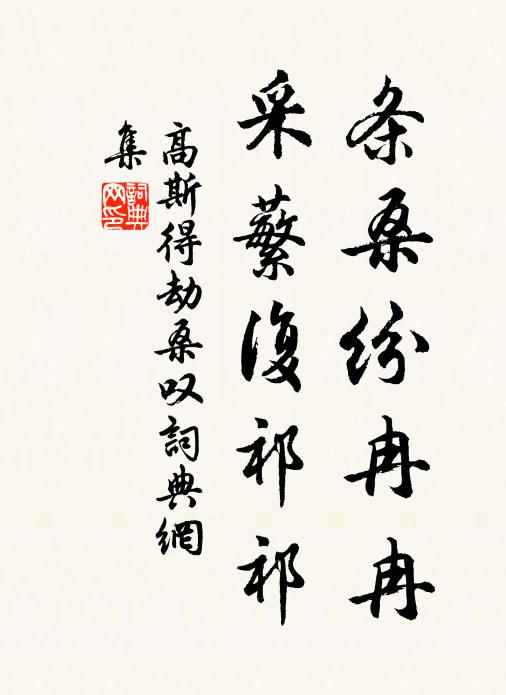 条桑纷冉冉
采蘩復祁祁
高斯得劫桑叹詞典網
集
詞典
网印